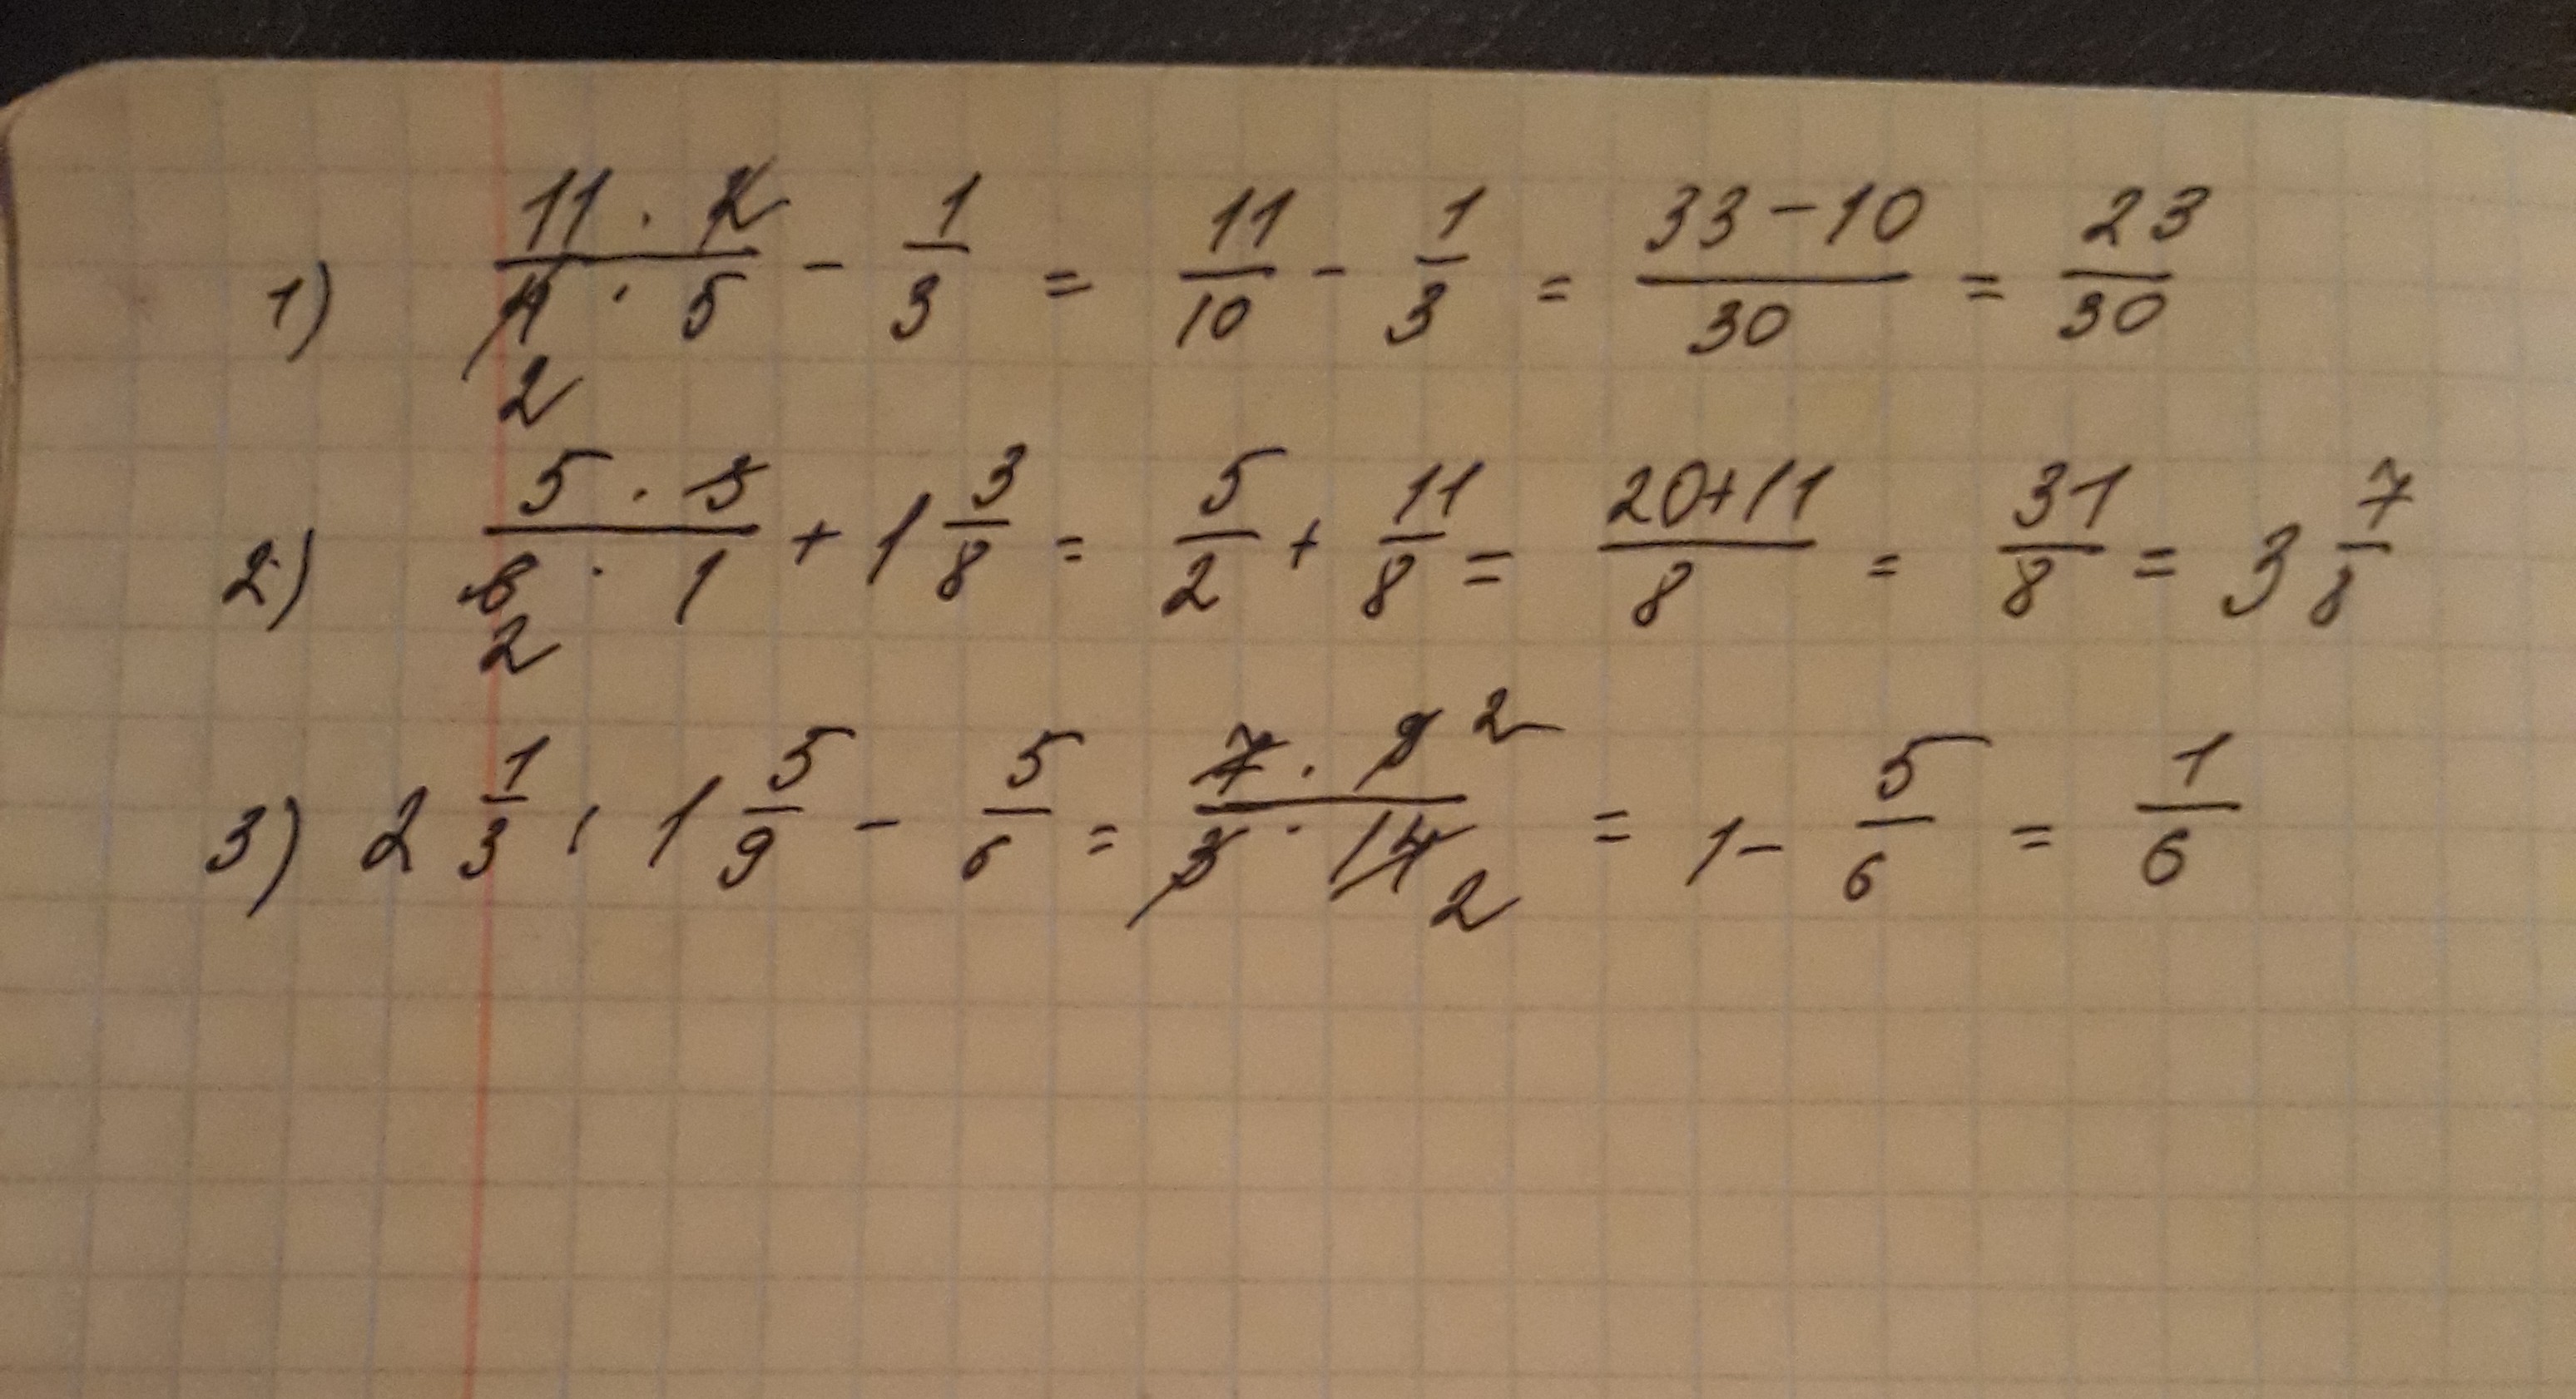 1) (11 · 2)/(4 · 5) - 1/3 = 11/10 - 1/3 = (33 - 10)/30 = 23/30
2
2) (5 · 3)/(6 · 1) + 1 3/8 = 5/2 + 11/8 = (20+11)/8 = 31/8 = 3 7/8
2
3) 2 1/3 : 1 5/9 - 5/6 = (7 · 9 2)/(3 · 14 2) = 1 - 5/6 = 1/6